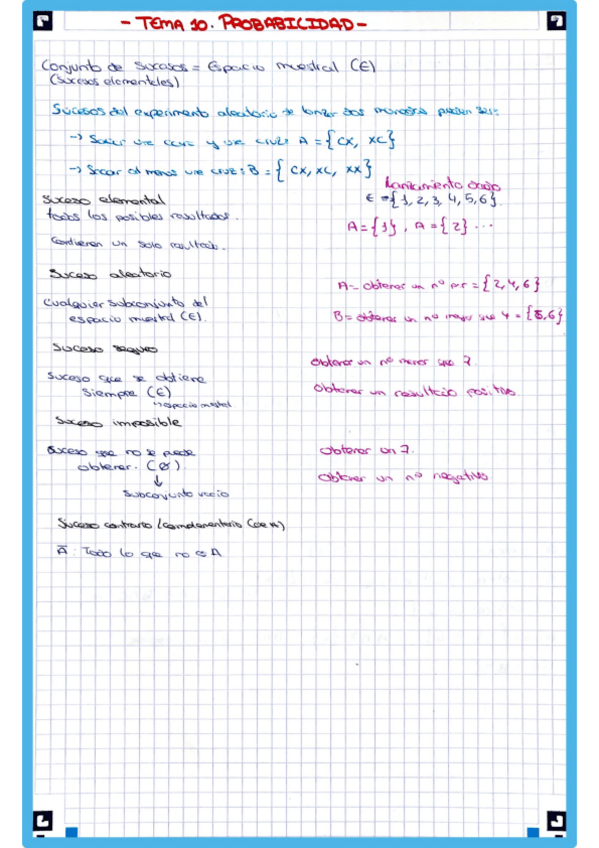 - TEMA 10. PROBABILIDAD -
Conjunto de sucesos = Espacio muestral (E)
(sucesos elementales)
Sucesos del experimento aleatorio de lanzar dos monedas pueden ser:
→ Sacar una cara y una cruz: A = {CX, XC}
→ Sacar al menos una cruz: B = {CX, XC, XX}
Lanzamiento dado
Suceso elemental
E = {1, 2, 3, 4, 5, 6}.
todos los posibles resultados.
A = {1}, A = {2} ...
Contienen un solo resultado.
Suceso aleatorio
A = Obtener un nº par = {2, 4, 6}
Cualquier subconjunto del
espacio muestral (E).
B = obtener un nº mayor que 4 = {5, 6}
Suceso seguro
Obtener un nº menor que 7.
Suceso que se obtiene
siempre (E)
↳ espacio muestral
Obtener un resultado positivo.
Suceso imposible
Suceso que no se puede
obtener. (Ø)
↓
Subconjunto vacío
Obtener un 7.
Obtener un nº negativo
Suceso contrario / complementario (de A)
A̅ : Todo lo que no es A